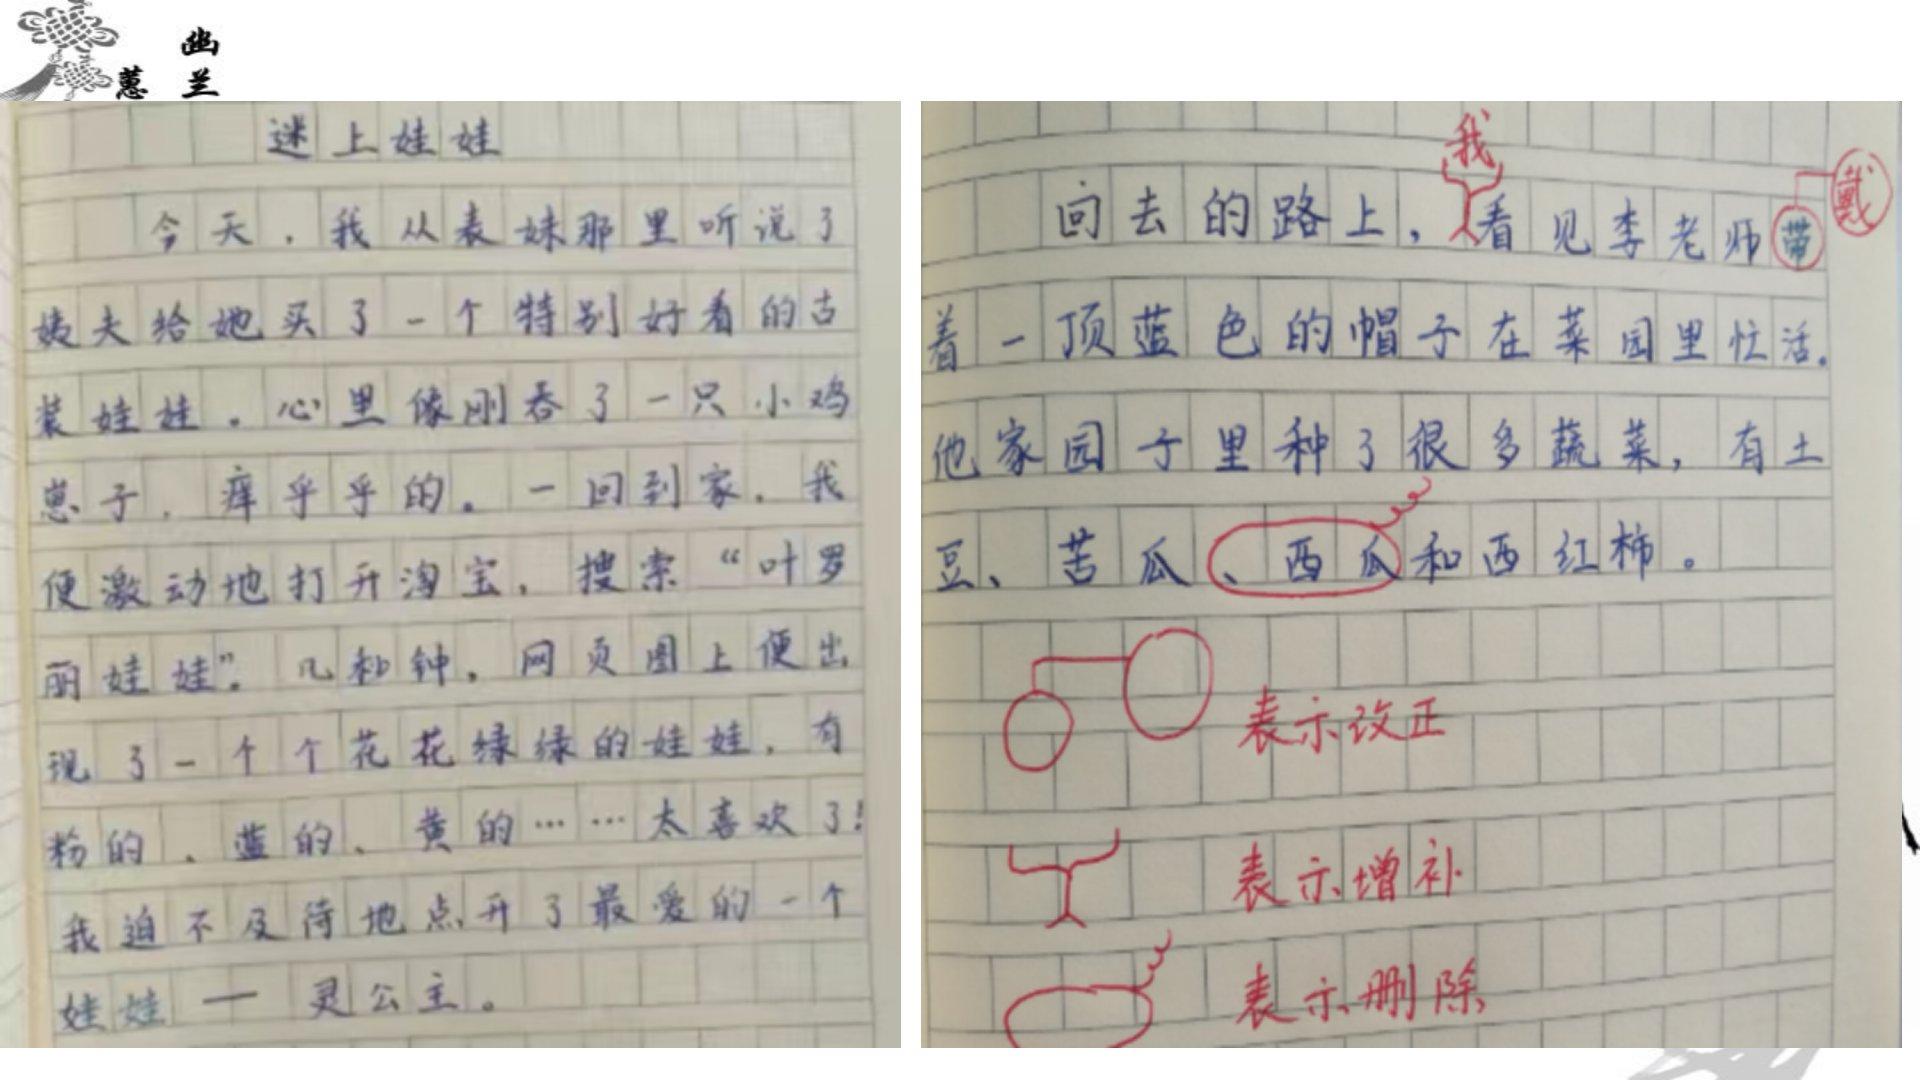 幽
蕙 兰
迷上娃娃
今天，我从表妹那里听说了
姨夫给她买了一个特别好看的古
装娃娃。心里像刚吞了一只小鸡
崽子，痒乎乎的。一回到家，我
便激动地打开淘宝，搜索“叶罗
丽娃娃”。几秒钟，网页图上便出
现了一个个花花绿绿的娃娃，有
粉的、蓝的、黄的……太喜欢了！
我迫不及待地点开了最爱的一个
娃娃—灵公主。
我
戴
回去的路上，看见李老师带
着一顶蓝色的帽子在菜园里忙活。
他家园子里种了很多蔬菜，有土
豆、苦瓜、西瓜和西红柿。
表示改正
表示增补
表示删除